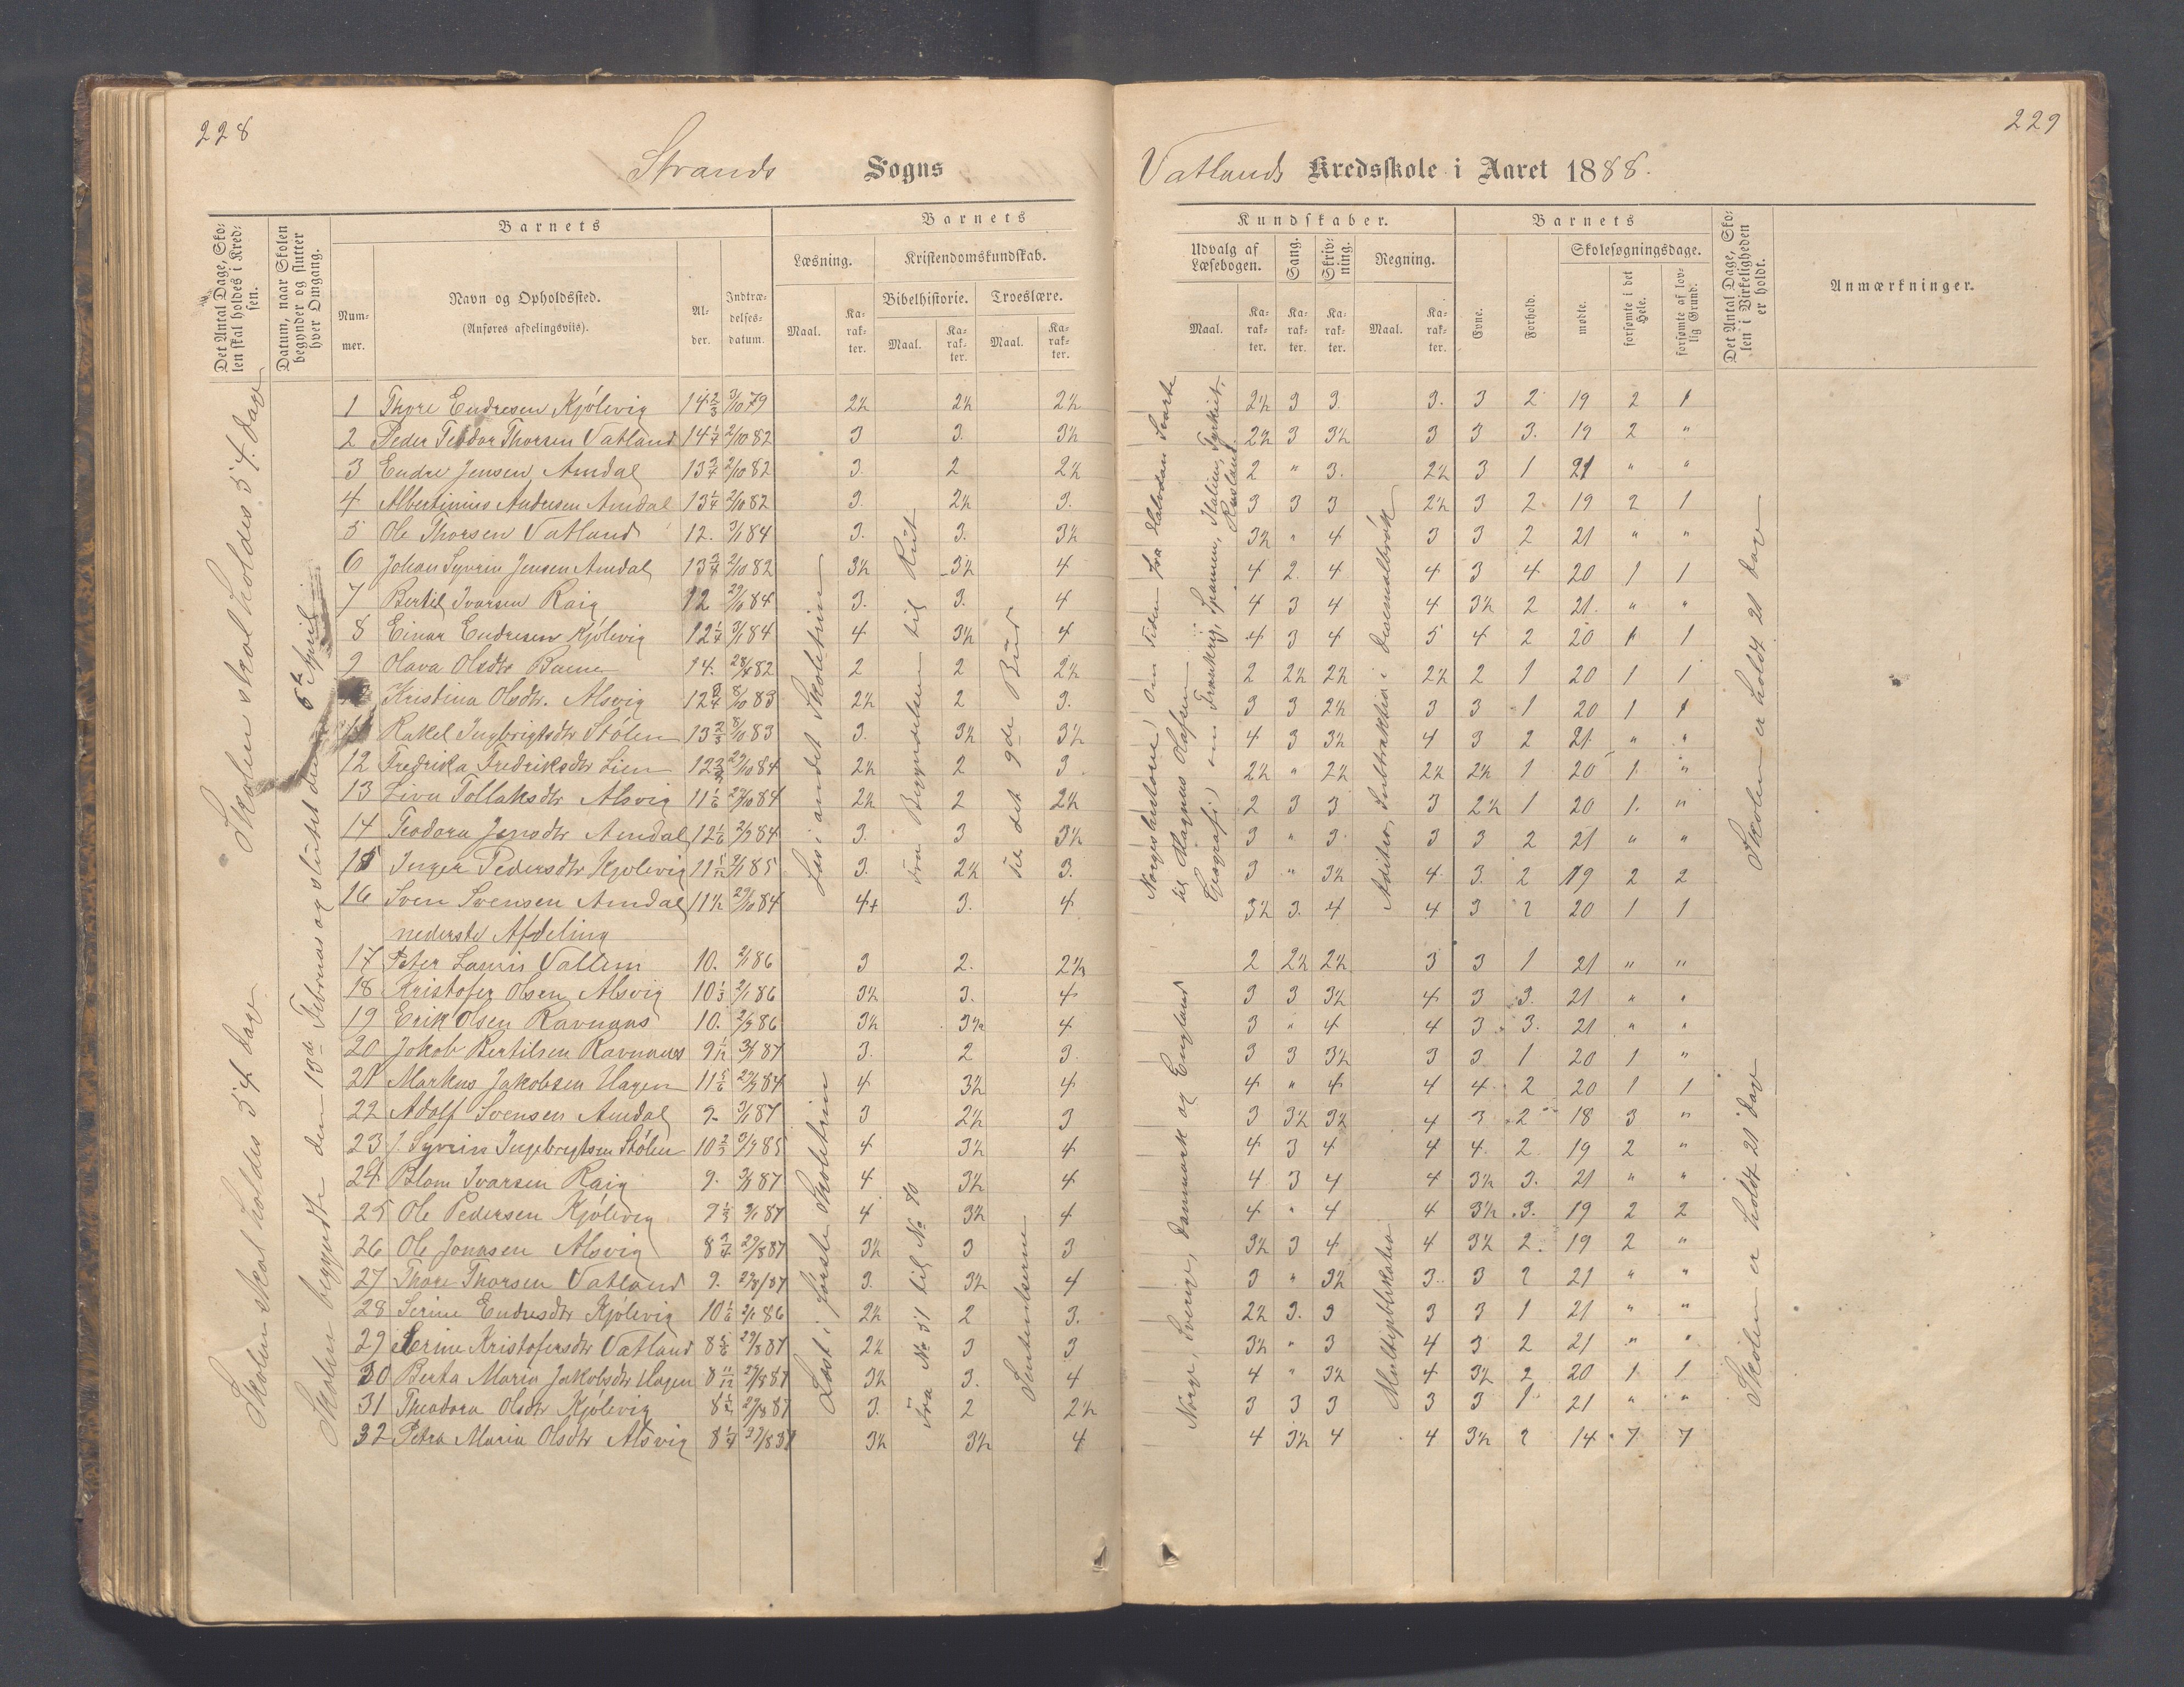 228
Strands Sogns
Det Antal Dage, Sko-
len skal holdes i Kred-
sen.
Datum, naar Skolen
begynder og slutter
hver Omgang.
Barnets
Num-
mer.
Navn og Opholdssted.
(Anføres afdelingsviis).
Al-
der.
Indtræ-
delses-
datum.
Barnets
Læsning.
Kristendomskundskab.
Bibelhistorie.
Troeslære.
Maal.
Ka-
rak-
ter.
Maal.
Ka-
rak-
ter.
Maal.
Ka-
rak-
ter.
Skolen skal holdes 54 Dage
Skolen skal holdes 54 Dage
Skolen begyndte den 13de Februar og sluttet den 5te April
1 Thore Endresen Kjölevig 14 2/3 3/10 79 2½ 2½ 2½
2 Peder Teodor Thorsen Vatland 14 1/4 2/10 82 3 3. 3½
3 Endre Jensen Amdal 13 3/4 2/10 82 3. 2 2½
4 Albertinius Andersen Amdal 13 1/4 2/10 82 3. 2½ 3.
5 Ole Thorsen Vatland 12. 3/1 84 3. 3. 3½
6 Johan Syvrin Jensen Amdal 13 3/4 2/10 82 3½ 3½ 4
7 Bertil Ivarsen Raig 12 84 3. 3. 4
8 Einar Endresen Kjölevig 12 1/4 3/1 84 4 3½ 4
9 Olava Olsdtr 14. 82 2 2 2½
Kristina Olsdtr. Alsvig 12 8/10 83 2½ 2 3.
11 Rakel Ingbrigtsdtr Stölen 13 2/3 8/10 83 3. 3½ 3½
12 Fredrika Fredriksdtr Lien 12 29/10 84 2½ 2 3
13 Liva Tollaksdtr Alsvig 11 1/6 84 2½ 2 2½
14 Teodora Jensdtr Amdal 12 1/6 84 3. 3 3½
15 Inger Pedersdtr Kjölevig 11 5/12 85 3. 2½ 3.
16 Sven Svensen Amdal 11½ 29/10 84 4+ 3. 4
nederste Afdeling
17 Peter Lauris Vatland 10. 2/1 86 3 2. 2½
18 Kristofer Olsen Alsvig 10 1/3 2/1 86 3½ 3. 4
19 Erik Olsen Ravnaas 10. 86 3½ 3½ 4
20 Jakob Bertilsen Ravnaas 9 1/12 87 3. 2 3.
21 Markus Jakobsen Hagen 11 5/6 84 4 3½ 4
22 Adolf Svensen Amdal 9. 3/1 87 3 2½ 3
23 Syvrin Ingebrigtsen Stölen 10 2/3 85 4 3½ 4
24 Blom Ivarsen Raig 9. 87 4 3½ 4
25 Ole Pedersen Kjölevig 9 1/3 87 4 3½ 4
26 Ole Jonasen Alsvig 8 3/4 29/8 87 3½ 3 3
27 Thore Thorsen Vatland 9. 29/8 87 3. 3½ 4
28 Serine Endresdtr Kjölevig 10 1/6 2/1 86 2½ 2 3.
29 Serine Kristofersdtr Vatland 8 5/6 29/8 87 2½ 3 3
30 Berta Maria Jakobsdtr Hagen 8 11/12 29/8 87 3½ 3. 4
31 Theodora Olsdtr Kjölevig 8½ 29/8 87 3. 2 2½
32 Petra Maria Olsdtr Alsvig 8 1/4 29/8 87 3½ 3½ 4
Læs i andet Skoletrin
Fra Begyndelsen til Rut
til det 9de Bud
Læst i første Skoletrin
Fra No 31 til No 80
Sententserne
229
Vatlands Kredsskole i Aaret 1888.
Kundskaber.
Udvalg af
Læsebogen.
Sang.
Skriv-
ning.
Regning.
Maal.
Ka-
rak-
ter.
Ka-
rak-
ter.
Ka-
rak-
ter.
Maal.
Ka-
rak-
ter.
Barnets
Evne.
Forhold.
Skolesøgningsdage.
mødte.
forsømte i det
Hele.
forsømte af lov-
lig Grund.
Det Antal Dage, Sko-
len i Virkeligheden
er holdt.
Anmærkninger.
Norgeshistorie, Om Tiden fra Halvdan Svarte
til Magnus Olafsen
Geografi, om Frankrig, Spanien, Italien, Tyrkiet,
Rusland.
Norge, Sverige, Danmark og England
Adition, Subtraktion i Desemalbrök
Multiplikation
Skolen er holdt 21 Dage
Skolen er holdt 21 Dage
2½ 3 3. 3. 3 2 19 2 1
2½ 3 3½ 3 3 3. 19 2 "
2 " 3. 2½ 3 1 21 " "
3 3 3 2½ 3 2 19 2 1
3½ " 4 3 3 2 21 " "
4 2. 4 4 3 4 20 1 1
4 3 4 4 3½ 2 21. " "
4 3 4 5 4 2 20 1 1
2 2½ 2½ 2½ 2 1 20 1 1
3 3 2½ 3 3 1 20 1 1
4 3 3½ 4 3 2 21 " "
2½ " 2½ 2½ 2½ 1 20 1 "
2 3 3 3 2½ 1 20 1. "
3 " 3 3 3 2 21 " "
3 " 3½ 4 3. 2 19 2 2
3½ 3. 4 4 3 2 20 1 1
2 2½ 2½ 3 3 1 21 " "
3 3 3½ 4 3 3. 21 " "
3 " 4 4 3 3. 21 " "
3 3 3½ 3 3 1 20 1 "
4 " 4 4 4 2 20 1 1
3 3½ 3½ 4 3 2 18 3 "
4 3 4 4 4 2 19 2 "
4 3 4 4 3½ 3. 21 " "
4 " 4 4 3½ 3. 19 2 2
3½ 3 4 4 3½ 2. 19 2 "
3 " 3½ 3 3 2 21 " "
2½ 3. 3 3 3 1 21 " "
3½ " 3 4 3 2 21 " "
4 " 3½ 4 3½ 2 20 1 1
3 3 3 3 3 1 21 " "
4 3½ 4 4 3½ 2 14 7 7